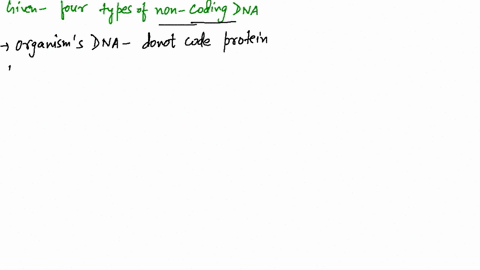 Given- four types of non-coding DNA
→ Organism's DNA- donot code protein